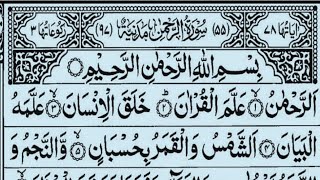 اٰیَاتُهَا ۷۸ (۵۵) سُوْرَةُ الرَّحْمٰنِ مَدَنِیَّةٌ (۹۷) رُکُوْعَاتُهَا ۳
بِسْمِ اللّٰهِ الرَّحْمٰنِ الرَّحِیْمِ
اَلرَّحْمٰنُ ۙ﴿۱﴾ عَلَّمَ الْقُرْاٰنَ ؕ﴿۲﴾ خَلَقَ الْاِنْسَانَ ۙ﴿۳﴾ عَلَّمَهُ
الْبَیَانَ ﴿۴﴾ اَلشَّمْسُ وَ الْقَمَرُ بِحُسْبَانٍ ﴿۵﴾ وَّ النَّجْمُ وَ